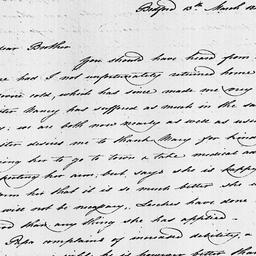 Bedford 13th March 18
ear Brother
You should have heard from
re had I not unfortunately returned home
severe cold, which has since made me very
ister Nancy has suffered as much in the sa
, we are both now nearly as well as usu
ister desires me to thank Mary for kind
ing her to go to town & take medical ad
specting her arm, but says she is happy
orm her that it is so much better she
will not be necessary. Leeches have done
ed than any thing she has applied.
Papa complains of increased debility, a
he is however better tha